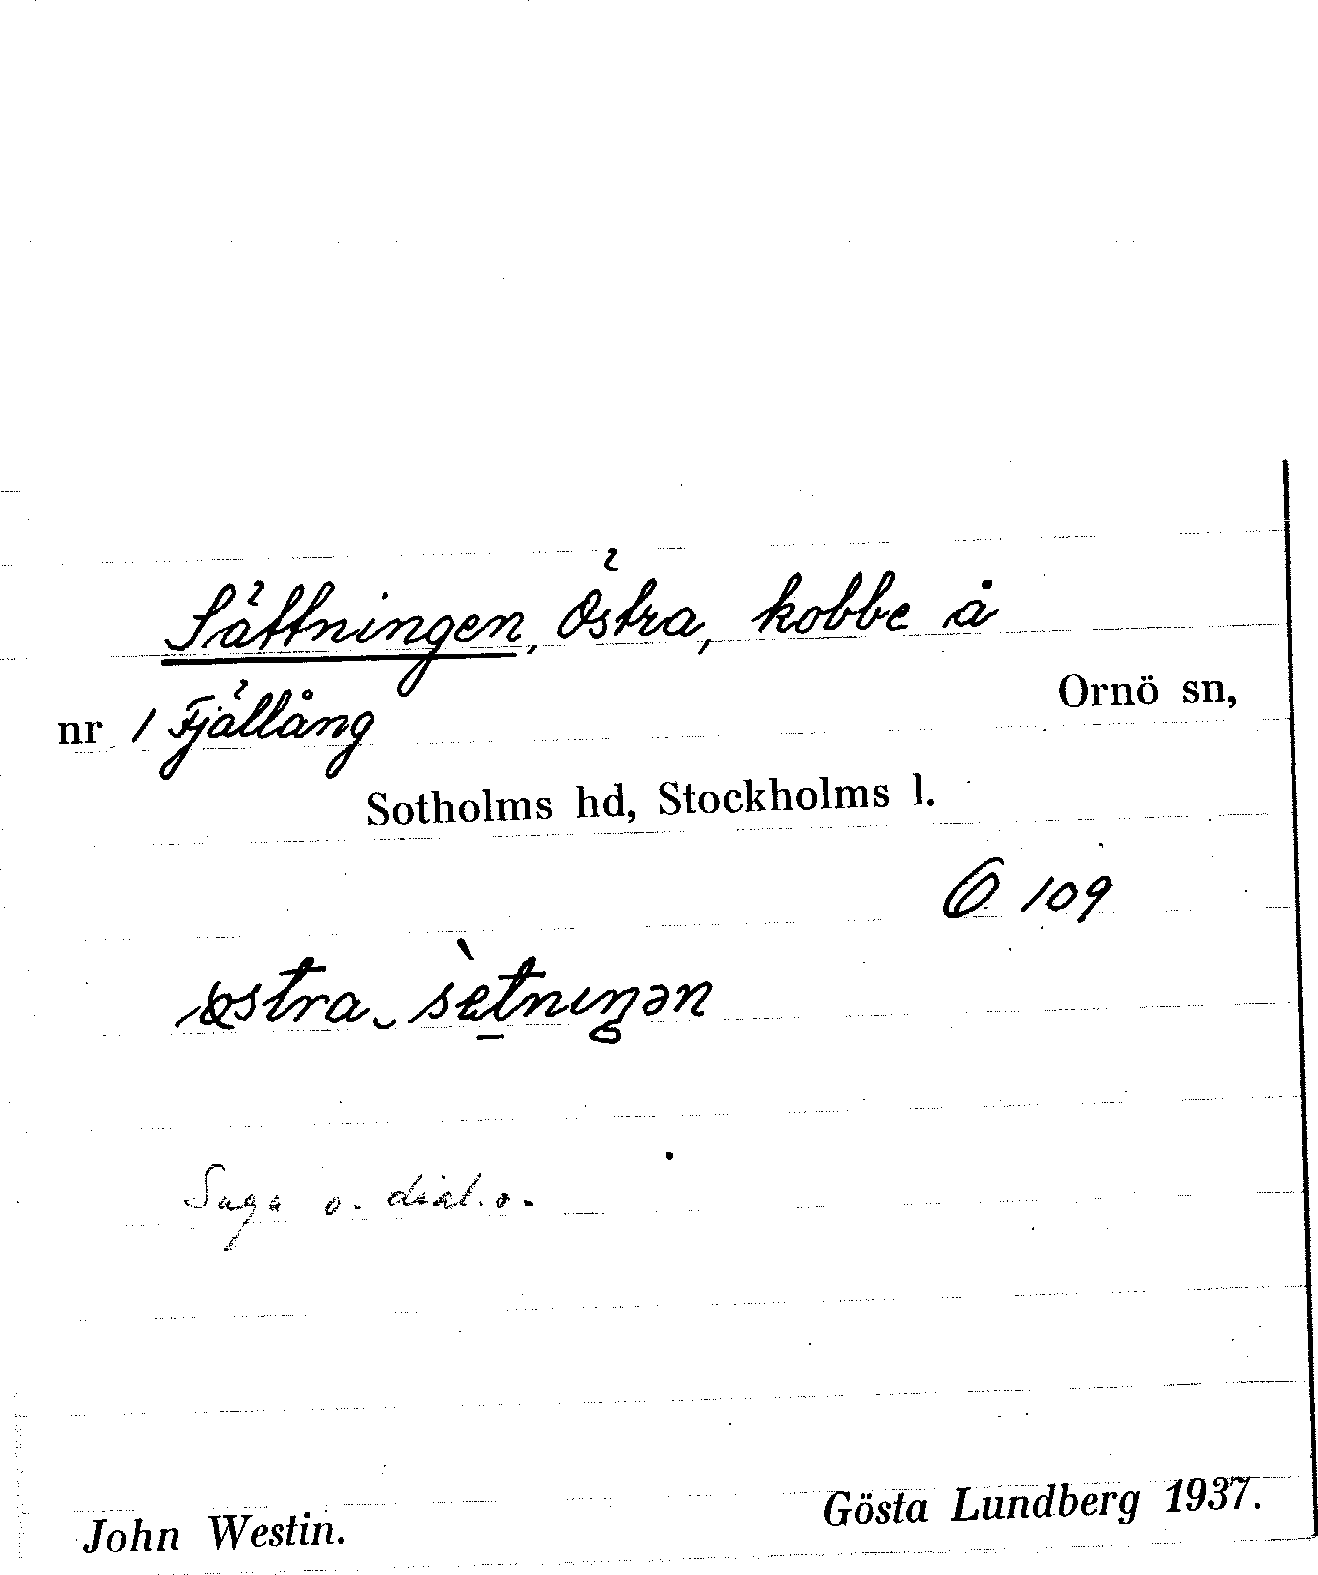 Sättningen, Östra, kobbe å
nr 1 Fjällång Ornö sn,
Sotholms hd, Stockholms l.
Ö 109
østra‿ sètnıŋən
Suga o. dial. o.
John Westin. Gösta Lundberg 1937.